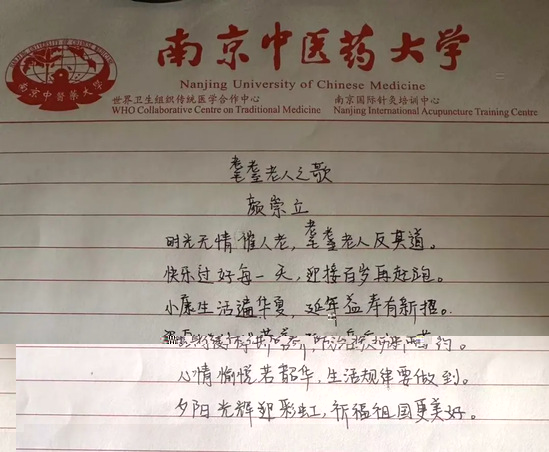 南京中医药大学
Nanjing University of Chinese Medicine
世界卫生组织传统医学合作中心 南京国际针灸培训中心
WHO Collaborative Centre on Traditional Medicine Nanjing International Acupuncture Training Centre
南京中醫藥大學
耄耋老人之歌
颜崇立
时光无情催人老,耄耋老人反其道。
快乐过好每一天,迎接百岁再赶跑。
小康生活遍华夏,延年益寿有新招。
心情愉悦若韶华,生活规律要做到。
夕阳光辉迎彩虹,祈福祖国更美好。